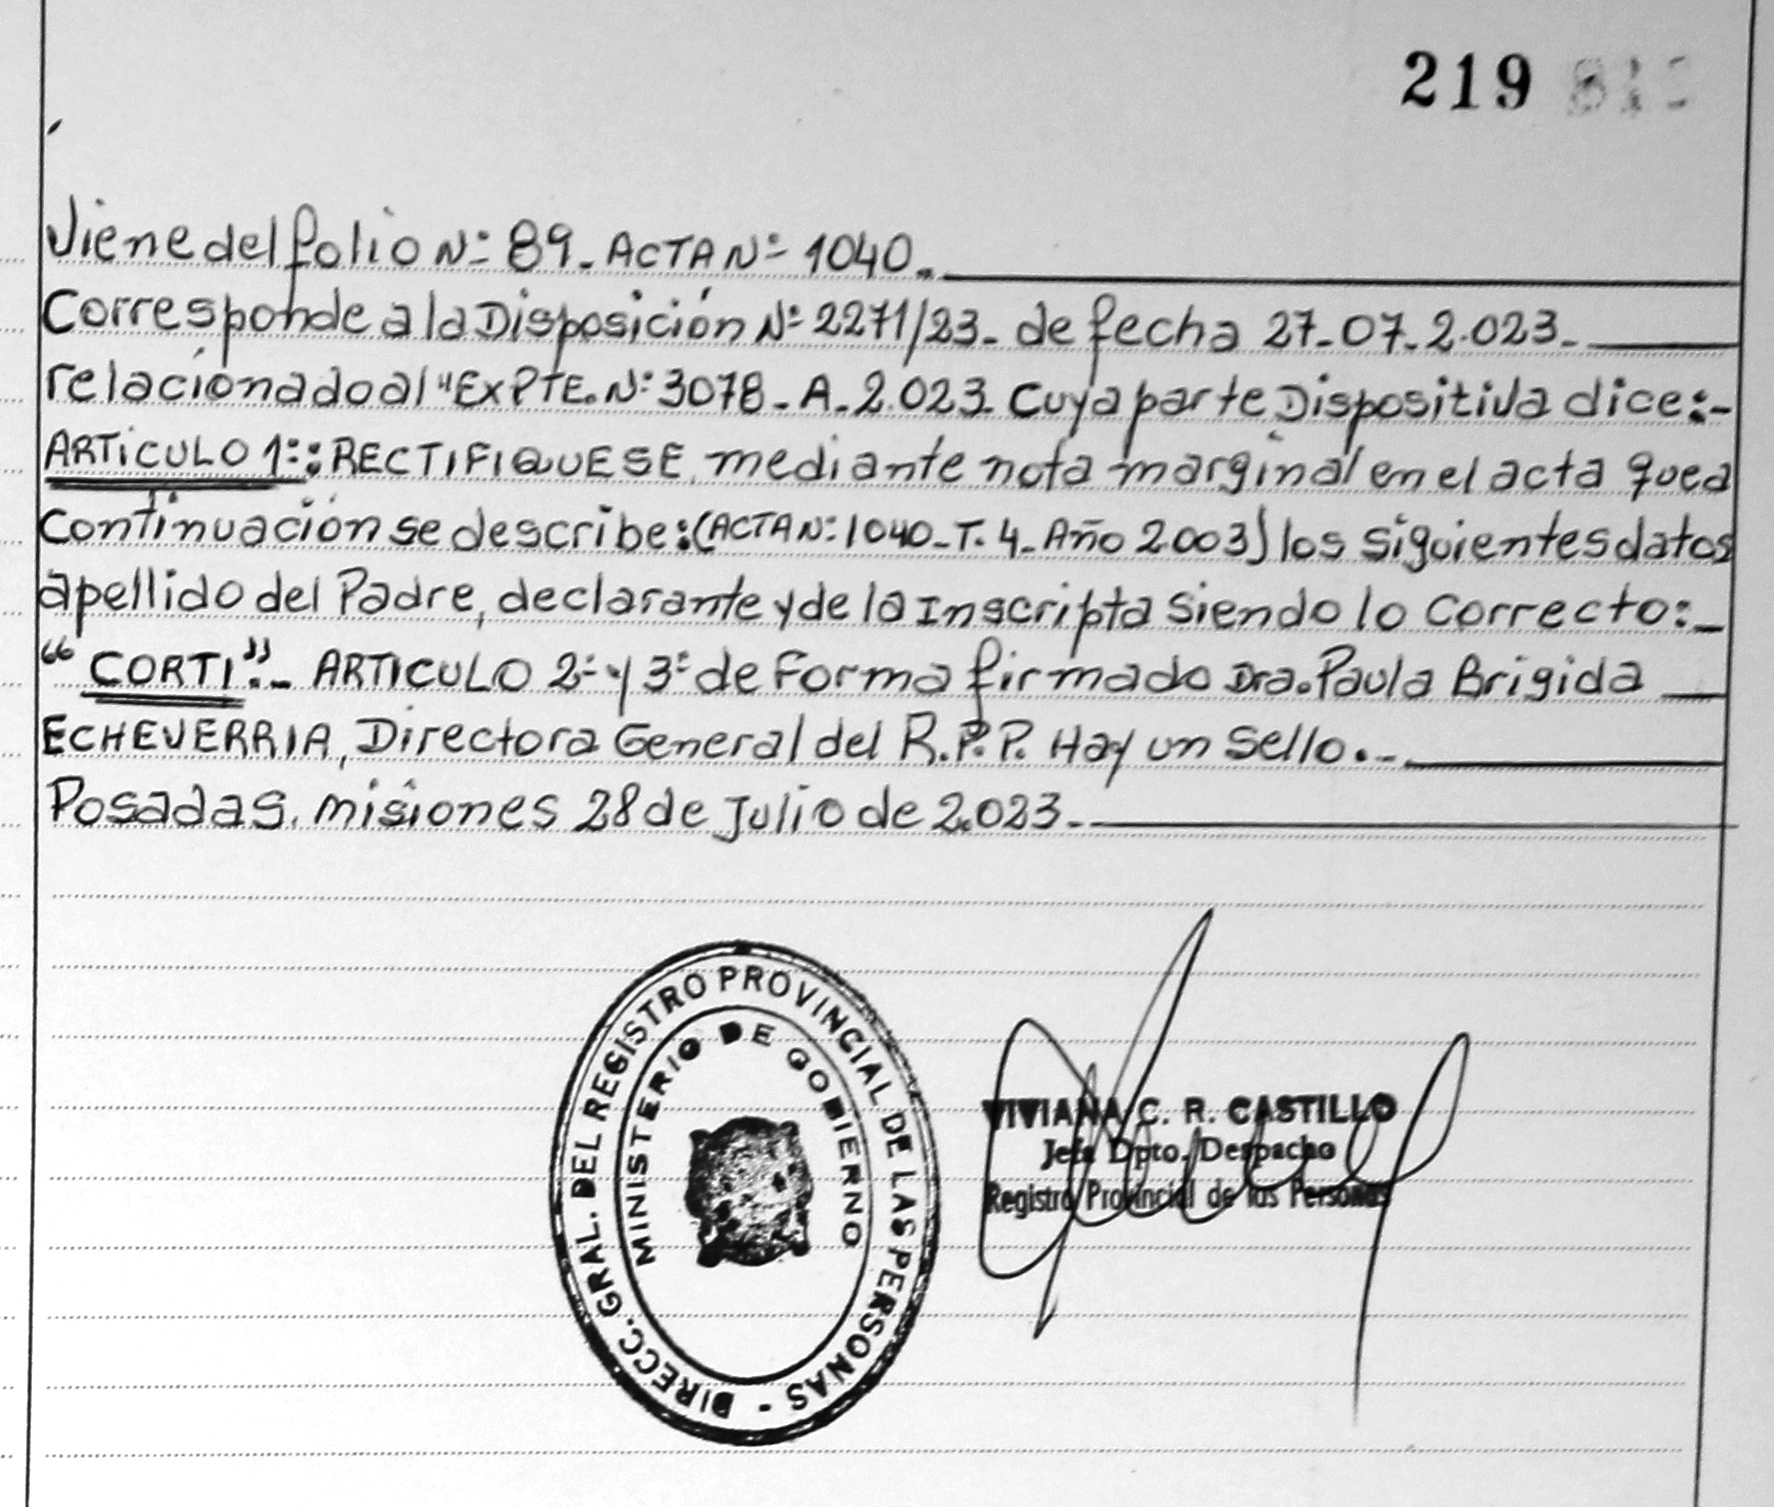 219
Viene del folio Nº 89_ ACTA Nº 1040_
Corresponde a la Disposición Nº 2271/23_ de fecha 27_07_2.023_
relacionado al "EXPTE. Nº 3078_A_2.023_ Cuya parte Dispositiva dice:-
ARTICULO 1º: RECTIFIQUESE, mediante nota marginal en el acta que a
Continuación se describe: (ACTA Nº 1040_T. 4_Año 2003) los siguientes datos
apellido del Padre, declarante y de la Inscripta Siendo lo Correcto:_
"CORTI"._ ARTICULO 2º y 3º de Forma firmado Dra. Paula Brigida
ECHEVERRIA, Directora General del R.P.P. Hay un Sello._
Posadas, misiones 28 de Julio de 2.023_
DIRECC. GRAL. DEL REGISTRO PROVINCIAL DE LAS PERSONAS -
MINISTERIO DE GOBIERNO
VIVIANA C. R. CASTILLO
Jefa Dpto. Despacho
Registro Provincial de las Personas